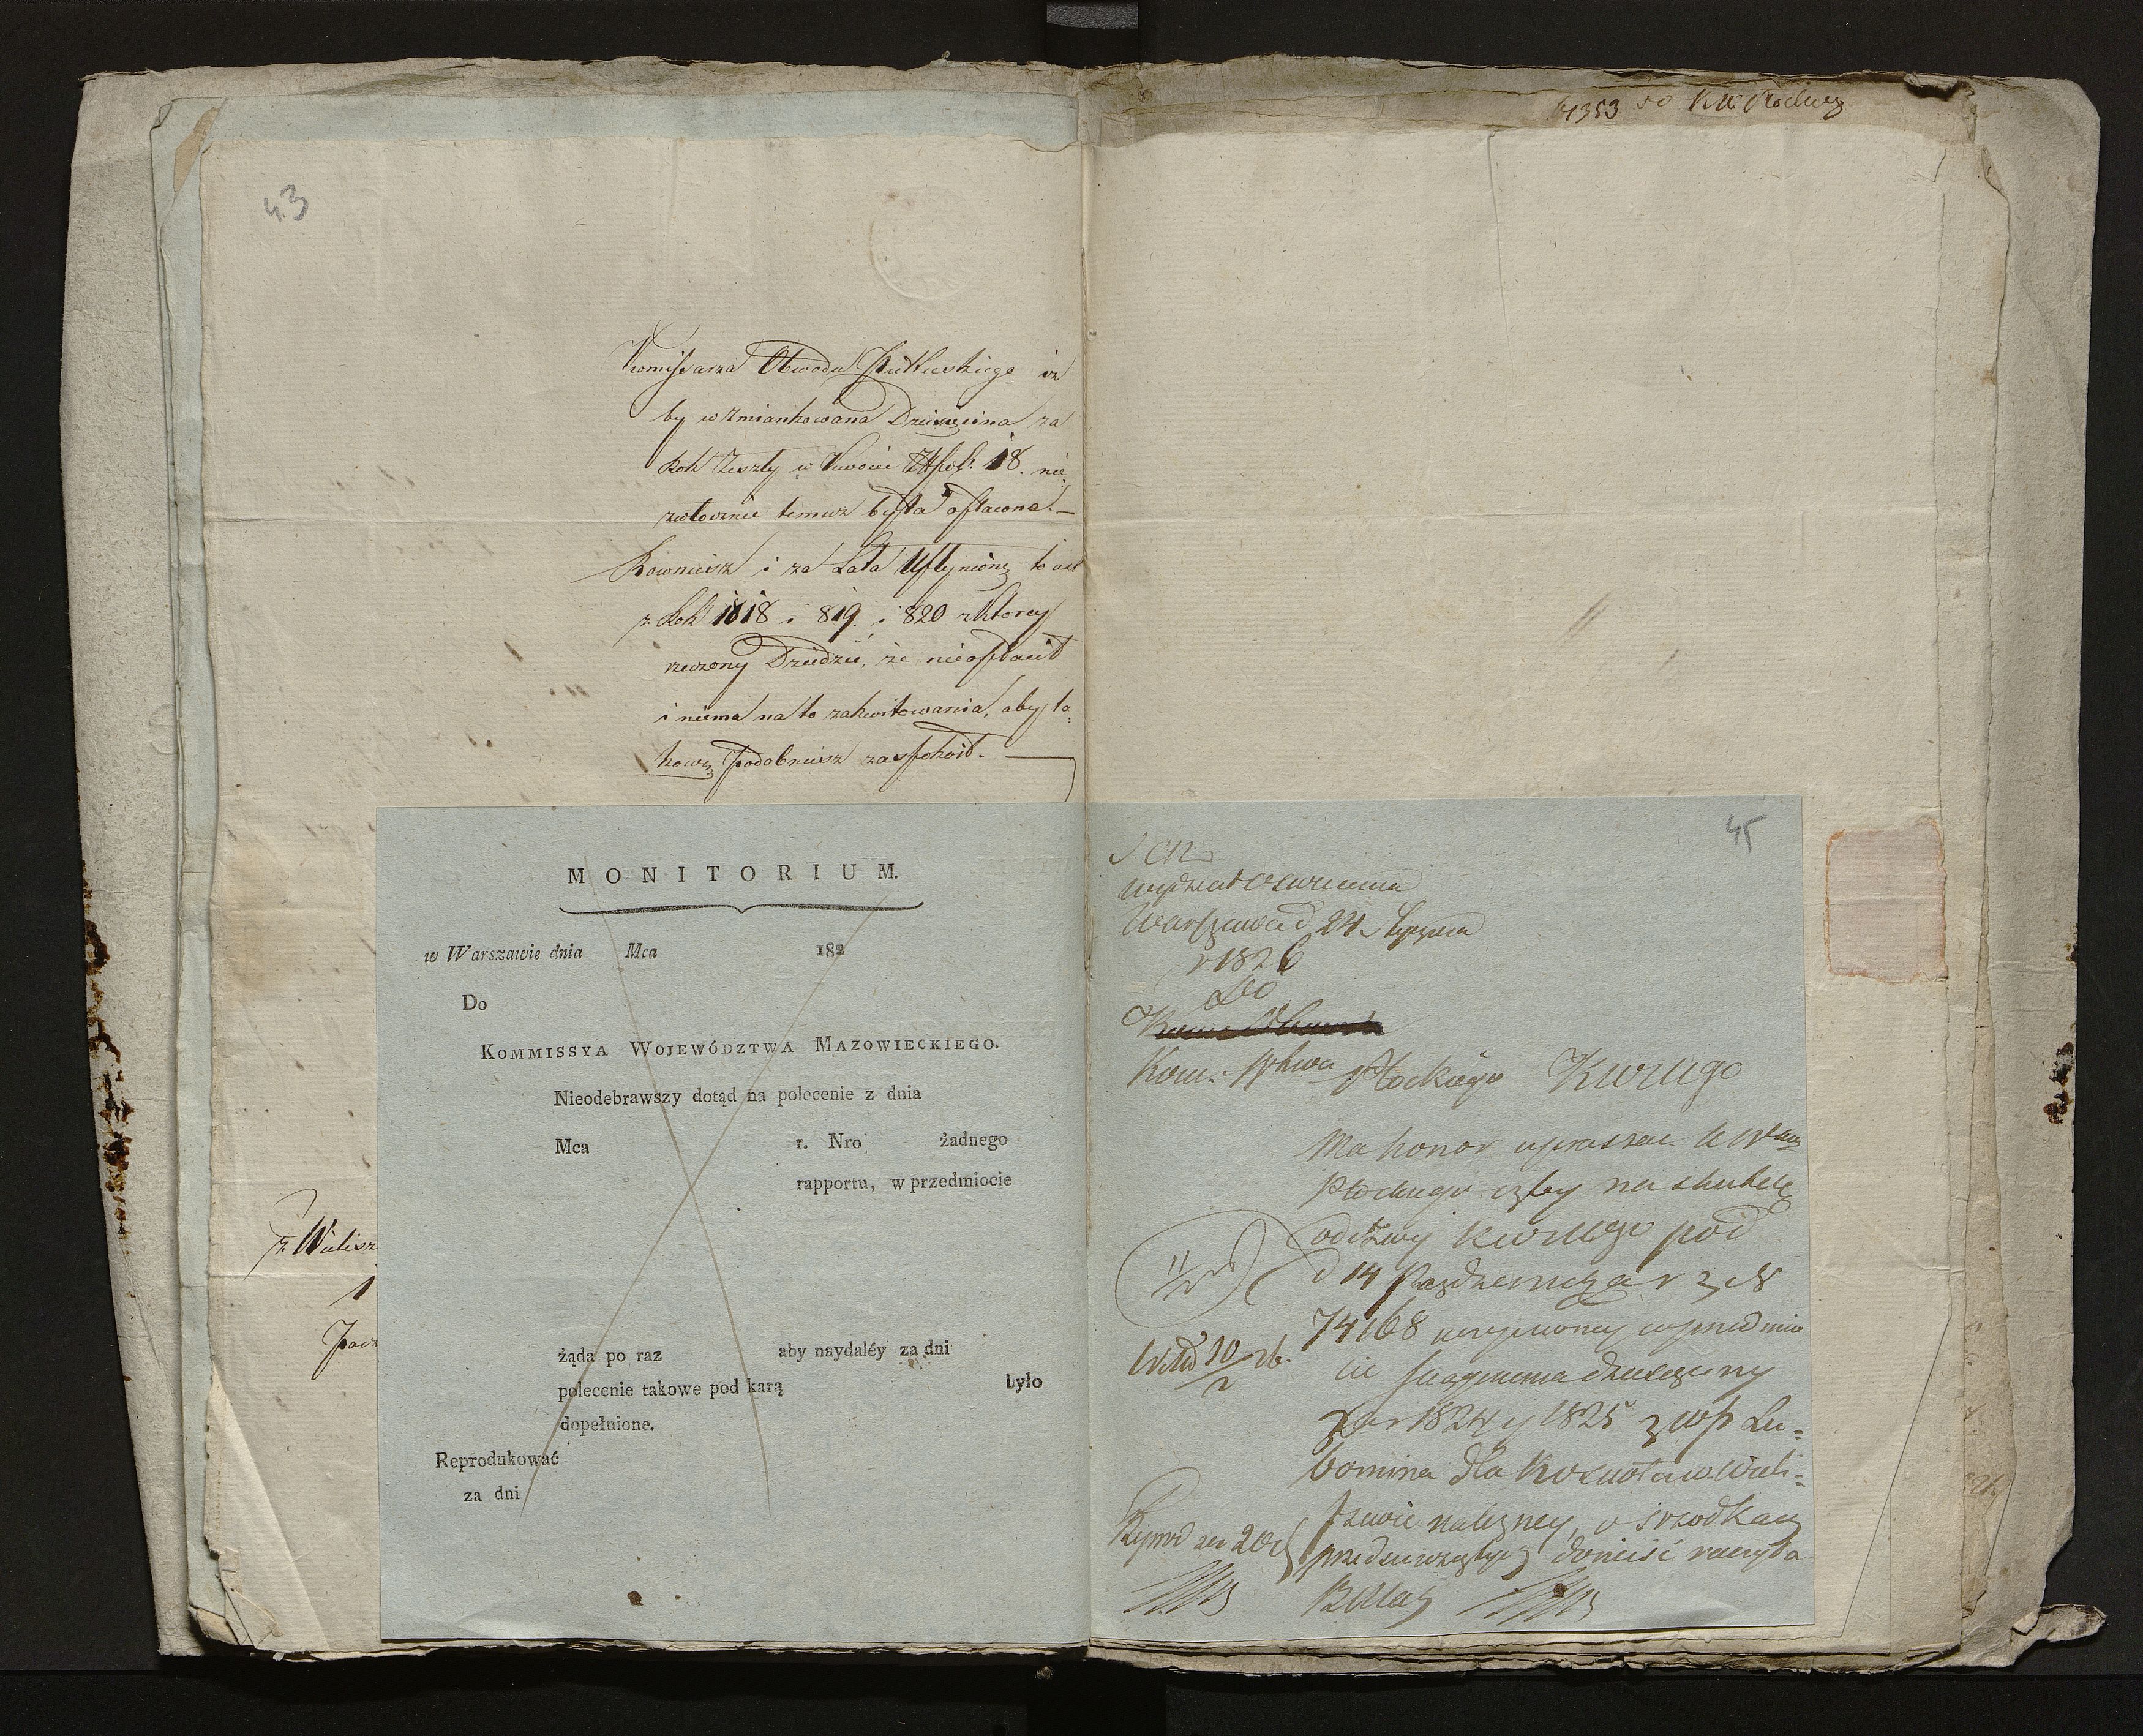 43
Kommissarza Obwodu Pułtuskiego iż
by wzmiankowana Dziesięcina za
Rok Zeszły w kwocie Złpol: 18. nie
zwłocznie temuż była opłacona. —
Rowniesz i za Lata Upłynione to iest
z Rok 1818 i 819. i 820 z ktorey
rzeczony Dziedzic, że nieopłacił
i niema na to zakwitowania, aby ta-
kową podobniesz zaspokoił. —
z Wielisz
MONITORIUM.
w Warszawie dnia Mca 182
Do
KOMMISSYA WOJEWÓDZTWA MAZOWIECKIEGO.
Nieodebrawszy dotąd na polecenie z dnia
Mca r. Nro żadnego
rapportu, w przedmiocie
żąda po raz aby naydaléy za dni
polecenie takowe pod karą było
dopełnione.
Reprodukować
za dni
4353 do KW Płockiey
45
Wydział Oswiecenia
Warszawa d. 24 Stycznia
r 1826
Do
Kom: Wtwa Płockiego
Ma honor upraszać KW
Płockiego ażeby na skutek
odezwy swego pod
d 14 Pazdziernika r z N
74168 uczynioney w przedmio
cie sciągnienia dziesięciny
za r 1824 y 1825 z wsi Lu-
bomina dla Koscioła w Wieli-
szewie należney, o srzodkach
przedsiewziętych doniesć raczyła